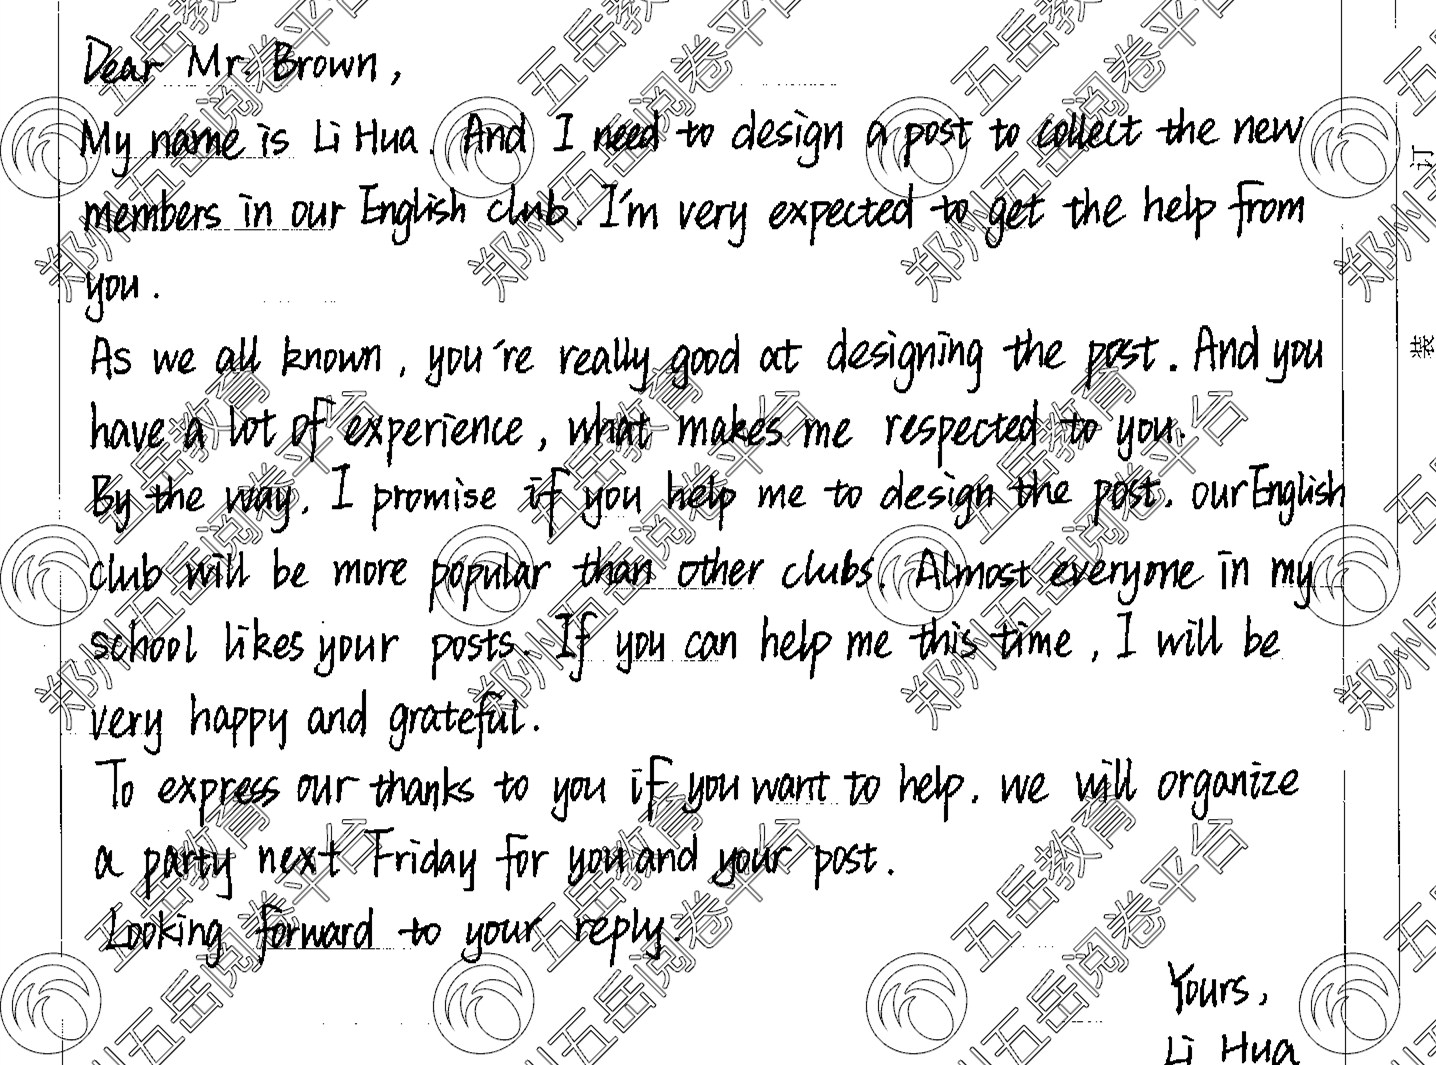 Dear Mr. Brown,
My name is Li Hua. And I need to design a post to collect the new
members in our English club. I'm very expected to get the help from
you.
As we all known, you're really good at designing the post. And you
have a lot of experience, what makes me respected to you.
By the way, I promise if you help me to design the post, our English
club will be more popular than other clubs. Almost everyone in my
school likes your posts. If you can help me this time, I will be
very happy and grateful.
To express our thanks to you if you want to help, we will organize
a party next Friday for you and your post.
Looking forward to your reply.
Yours,
Li Hua
订
装
郑州五岳阅卷平台
五岳教育